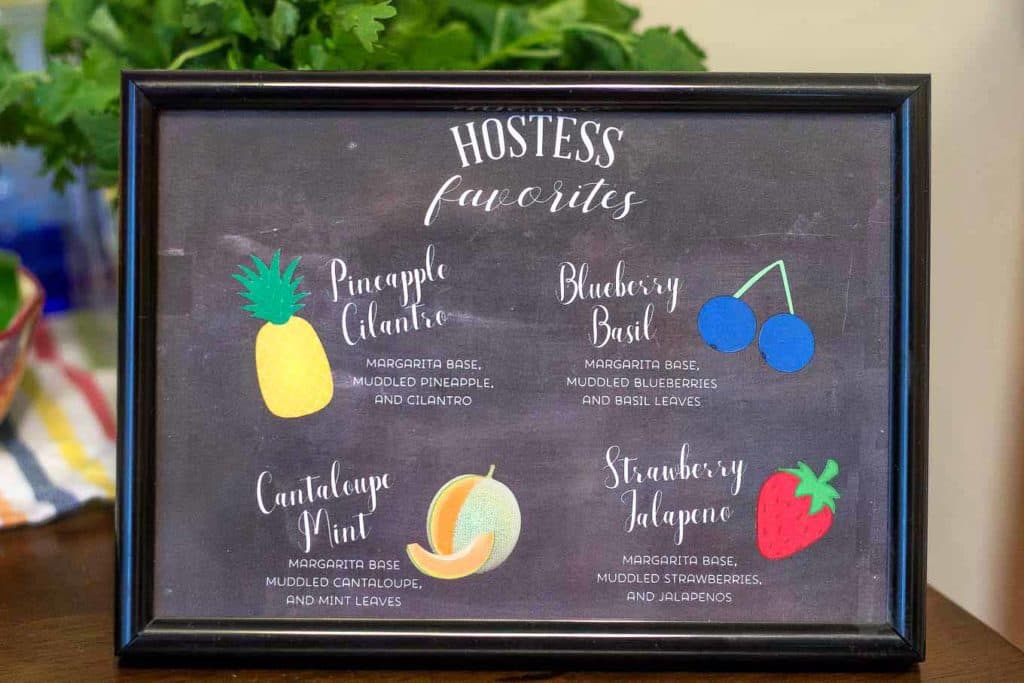 HOSTESS
favorites
Pineapple
Cilantro
MARGARITA BASE,
MUDDLED PINEAPPLE,
AND CILANTRO
Blueberry
Basil
MARGARITA BASE,
MUDDLED BLUEBERRIES
AND BASIL LEAVES
Cantaloupe
Mint
MARGARITA BASE
MUDDLED CANTALOUPE,
AND MINT LEAVES
Strawberry
Jalapeno
MARGARITA BASE,
MUDDLED STRAWBERRIES,
AND JALAPENOS